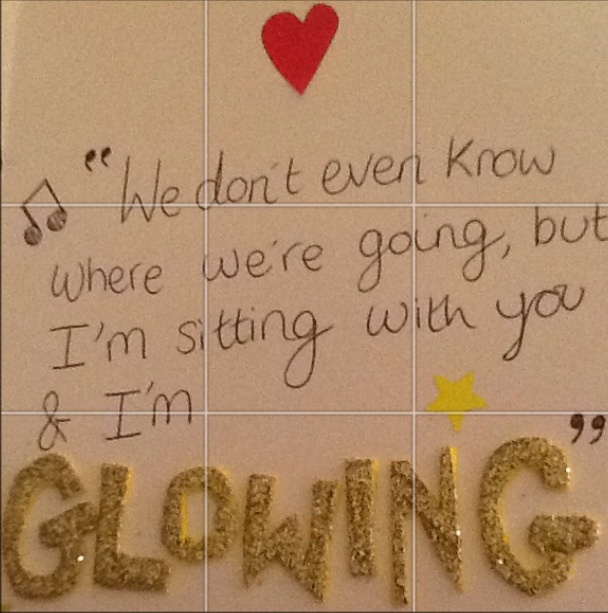 "We don't even know
where we're going, but
I'm sitting with you
& I'm
GLOWING"